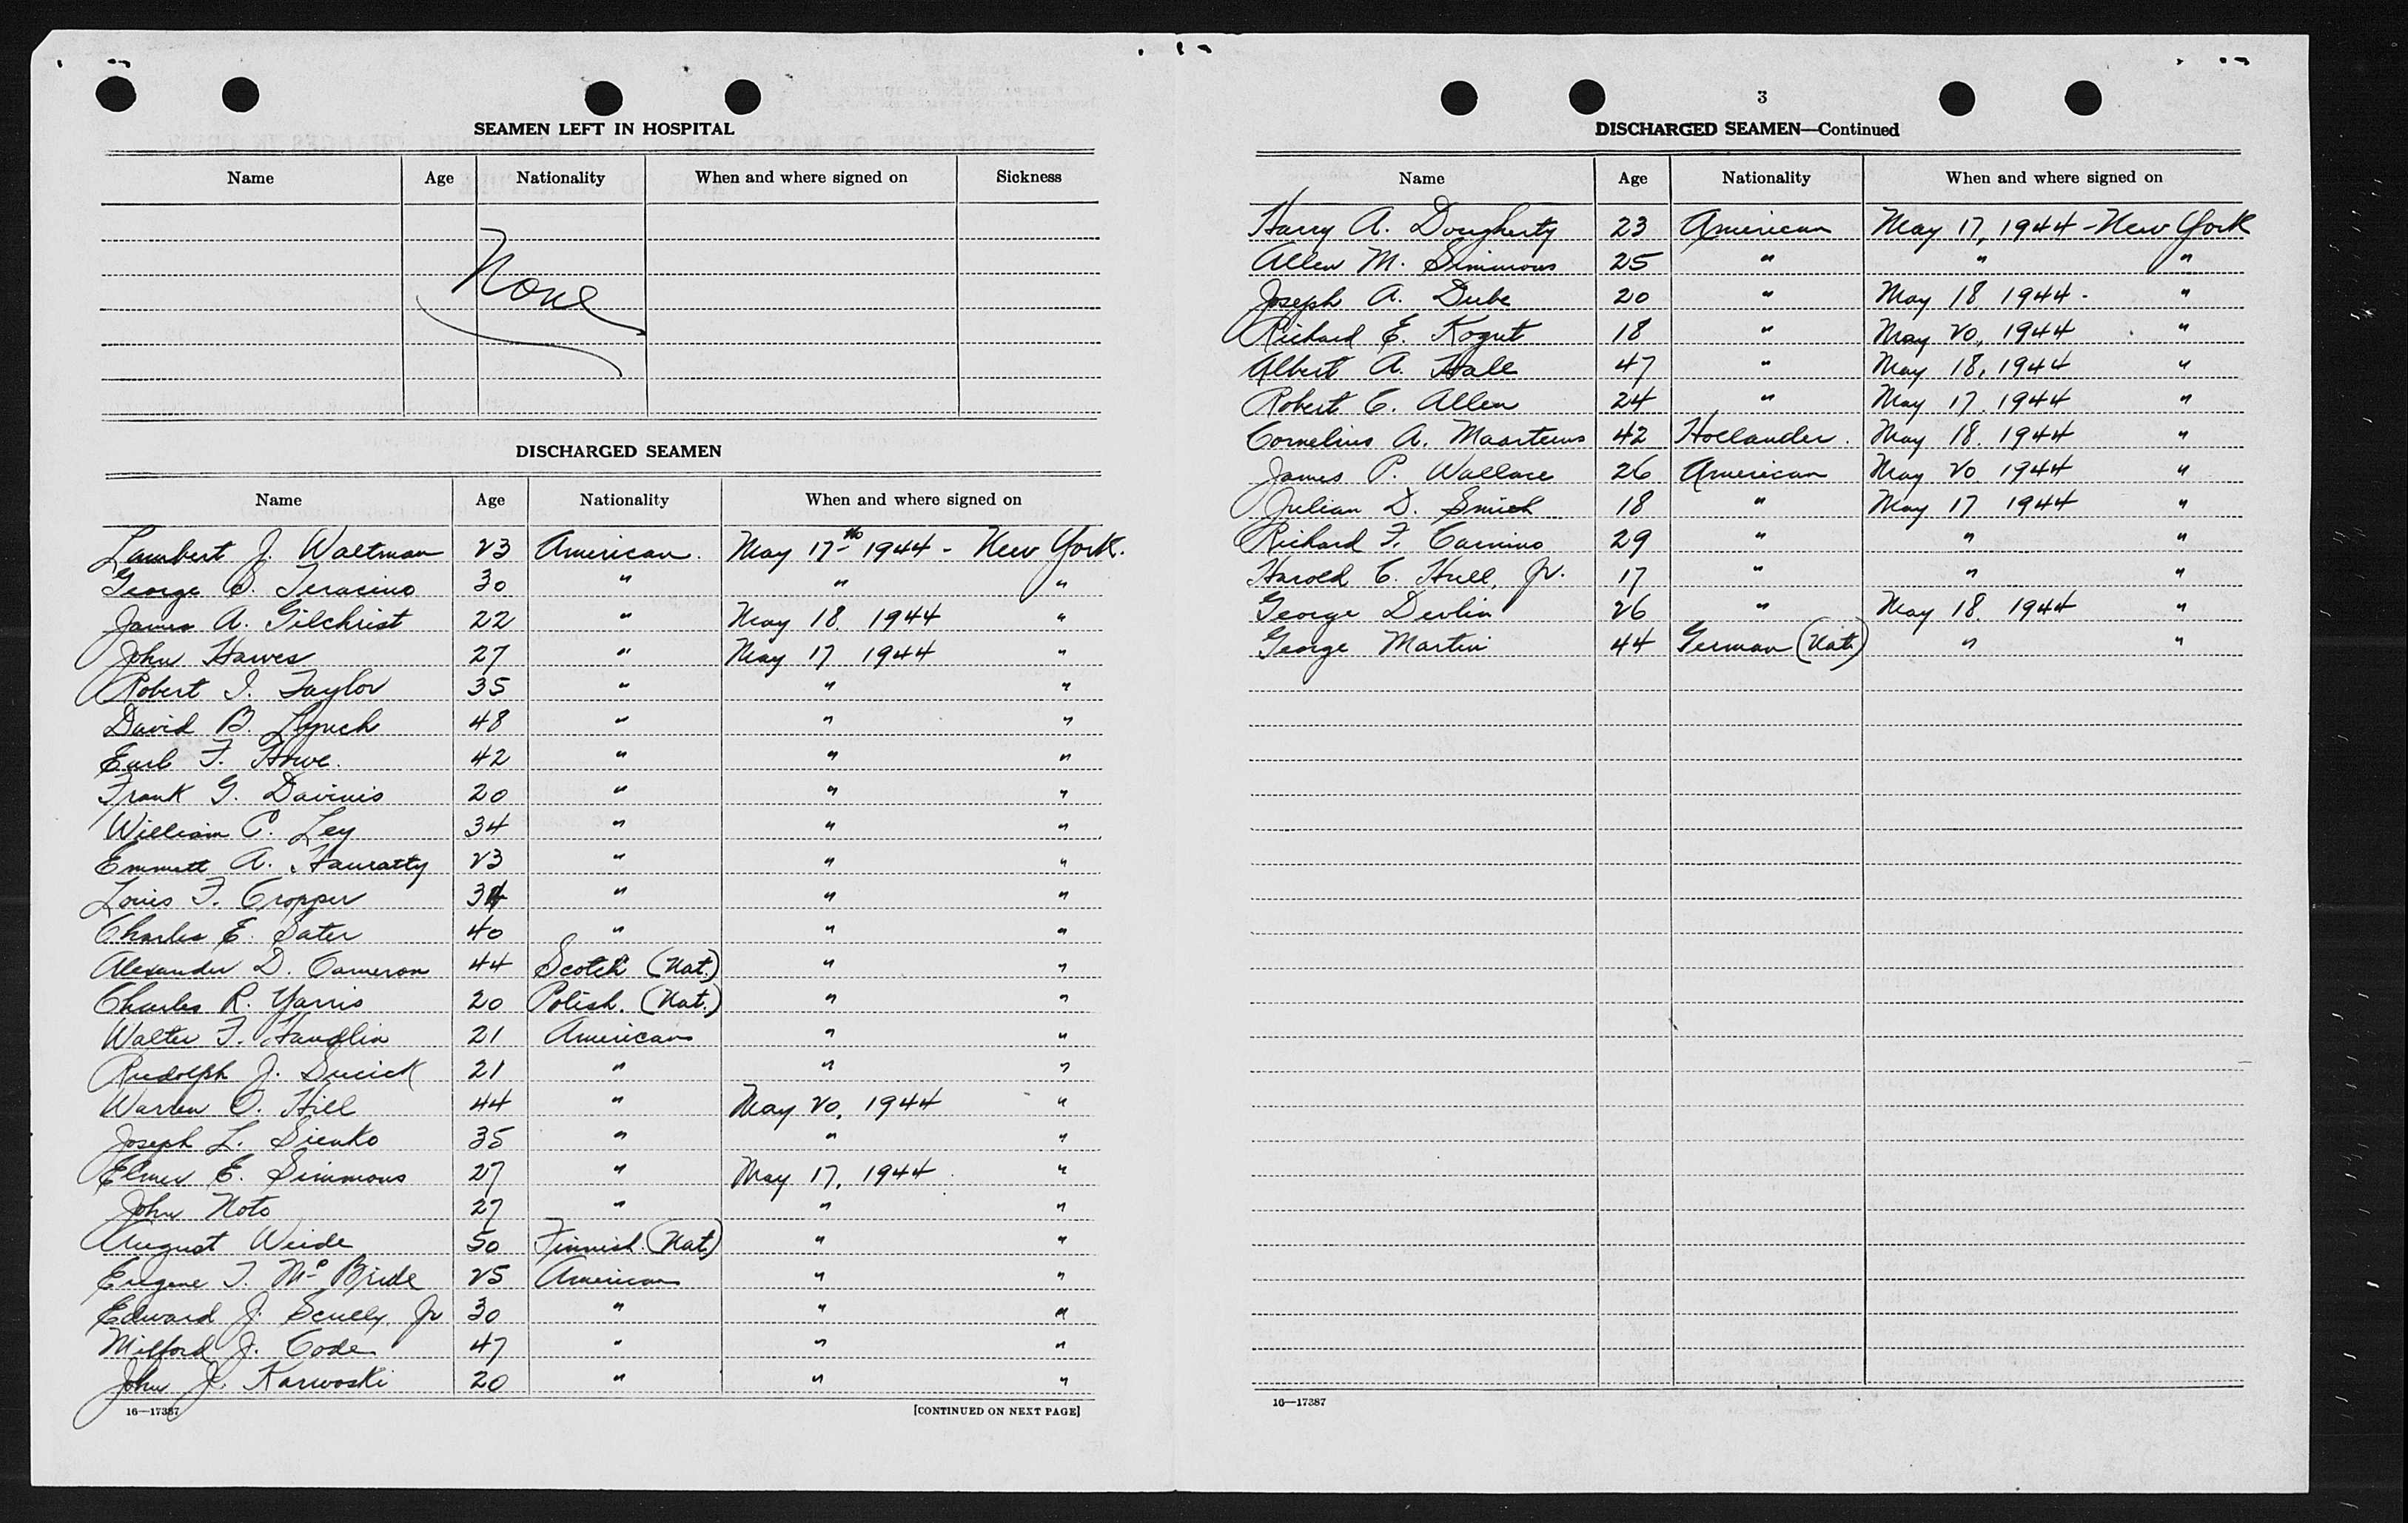 SEAMEN LEFT IN HOSPITAL
Name Age Nationality When and where signed on Sickness
None
DISCHARGED SEAMEN
Name Age Nationality When and where signed on
Lambert J. Waltman 23 American. May 17th 1944 - New York.
George Terracino 30 " " "
James A. Gilchrist 22 " May 18. 1944 "
John Hawes 27 " May 17 1944 "
Robert I. Taylor 35 " " "
David B. Lynch 48 " " "
Earl F. Howe. 42 " " "
Frank G. Davinis 20 " " "
William C. Ley 34 " " "
Emmett A. Hanratty 23 " " "
Louis F. Cropper 34 " " "
Charles E. Sater 40 " " "
Alexander D. Cameron 44 Scotch (Nat.) " "
Charles R. Yarris 20 Polish. (Nat.) " "
Walter F. Handlin 21 American " "
Rudolph J. 21 " " "
Warren O. Hill 44 " May 20, 1944 "
Joseph L. Sienko 35 " " "
Elmer E. Simmons 27 " May 17, 1944 "
John Noto 27 " " "
August Weide 50 Finnish. (Nat) " "
Eugene T. McBride 25 American " "
Edward J. Scully, Jr 30 " " "
Milford J. Code 47 " " "
John J. Karwoski 20 " " "
16—17387 [CONTINUED ON NEXT PAGE]
3
DISCHARGED SEAMEN—Continued
Name Age Nationality When and where signed on
Harry A. Dougherty 23 American May 17, 1944 - New York
Allen M. Simmons 25 " " "
Joseph A. Dube 20 " May 18 1944 - "
Richard E. Kogut 18 " May 20, 1944 "
Albert A. Hall 47 " May 18, 1944 "
Robert C. Allen 24 " May 17, 1944 "
Cornelius A. Maartens 42 Hollander. May 18. 1944 "
James P. Wallace 26 American May 20 1944 "
Julian D. Smith 18 " May 17 1944 "
Richard F. Camino 29 " " "
Harold C. Hull, Jr. 17 " " "
George Devlin 26 " May 18. 1944 "
George Martin 44 German (Nat.) " "
16—17387